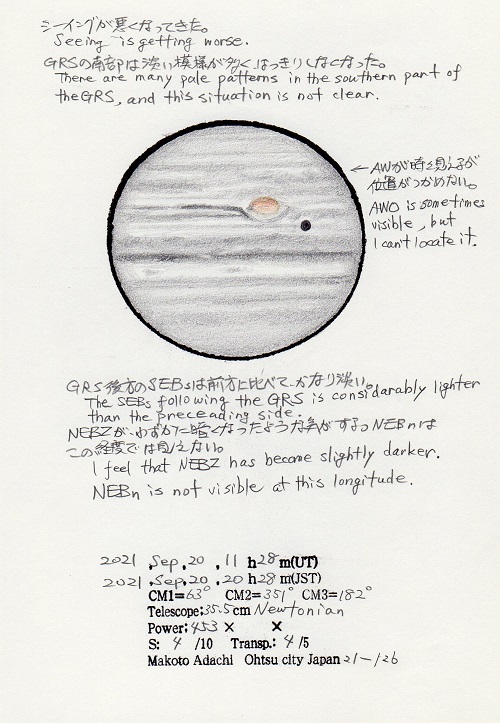 シーイングが悪くなってきた。
Seeing is getting worse.
GRSの南部は淡い模様が多くはっきりしなくなった。
There are many pale patterns in the southern part of
the GRS, and this situation is not clear.
← AWが時々見えるが
位置がつかめない。
AWO is sometimes
visible, but
I can't locate it.
GRS後方のSEBsは前方に比べてかなり淡い。
The SEBs following the GRS is considarably lighter
than the preceading side.
NEBZが、わずかに暗くなったような気がする。NEBnは
この経度では見えない。
I feel that NEBZ has become slightly darker.
NEBn is not visible at this longitude.
2021 ,Sep,20 ,11 h28m(UT)
2021 ,Sep,20 ,20 h28m(JST)
CM1=63° CM2=351° CM3=182°
Telescope:35.5cm Newtonian
Power:453× ×
S: 4 /10 Transp.: 4 /5
Makoto Adachi Ohtsu city Japan 21-126